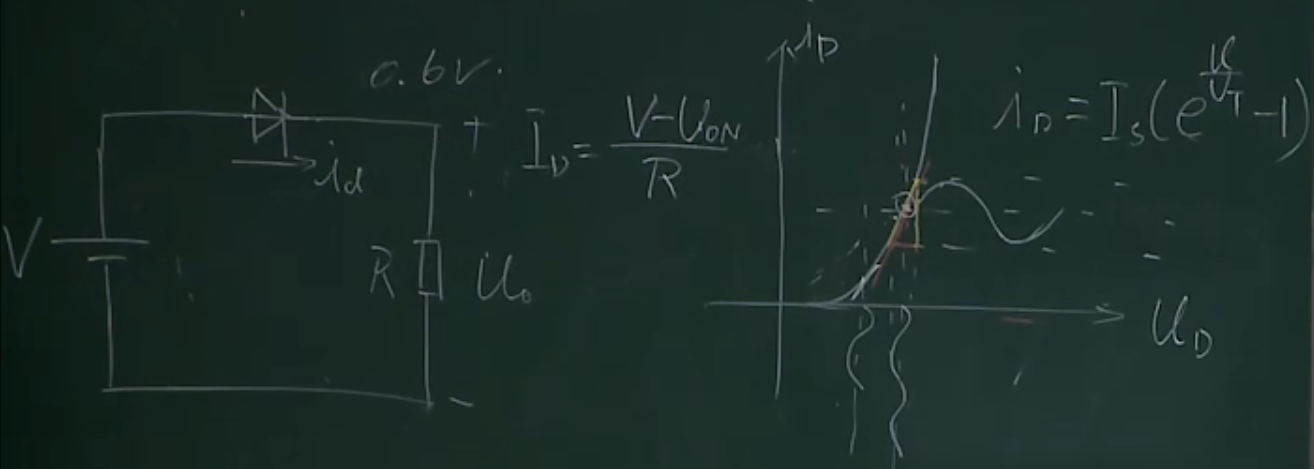 0.6V.
V
i_d
R
U_o
+
−
I_D = \frac{V-U_{ON}}{R}
i_D
i_D = I_s(e^{\frac{u}{U_T}}-1)
U_D